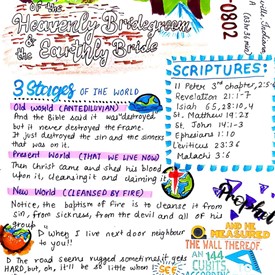 of the
Heavenly Bridegroom
& the Earthly Bride
-0802
ville, Indiana
3 Stages OF THE WORLD
Old World (ANTEDILUVIAN)
And the Bible said it was destroyed
but it never destroyed the frame.
It just destroyed the sin and the sinners
that was on it.
Present World (THAT WE LIVE NOW)
Then Christ came and shed his blood
upon it, cleansing it and claiming it.
New World (CLEANSED BY FIRE)
Notice, the baptism of fire is to cleanse it from
sin, from sickness, from the devil and all of his
group
D when I live next door neighbour
to you!!
D The road seems rugged sometimes, it gets
HARD, but, oh, It'll be so little when I
SCRIPTURES:
II Peter 3rd chapter, 2:5-6
Revelation 21:1-7
Isiah 65, 28:10, 4
St. Matthew 19:28
St. John 14:1-3
Ephesians 1:10
Leviticus 23:36
Malachi 3:6
Prophet
AND HE
MEASURED
THE WALL THEREOF,
AN 144
CUBITS,